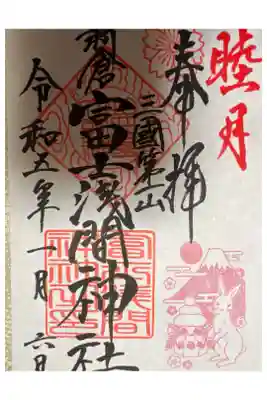 睦月
奉拝
三國第一山
羽倉 富士浅間神社
令和五年一月六日